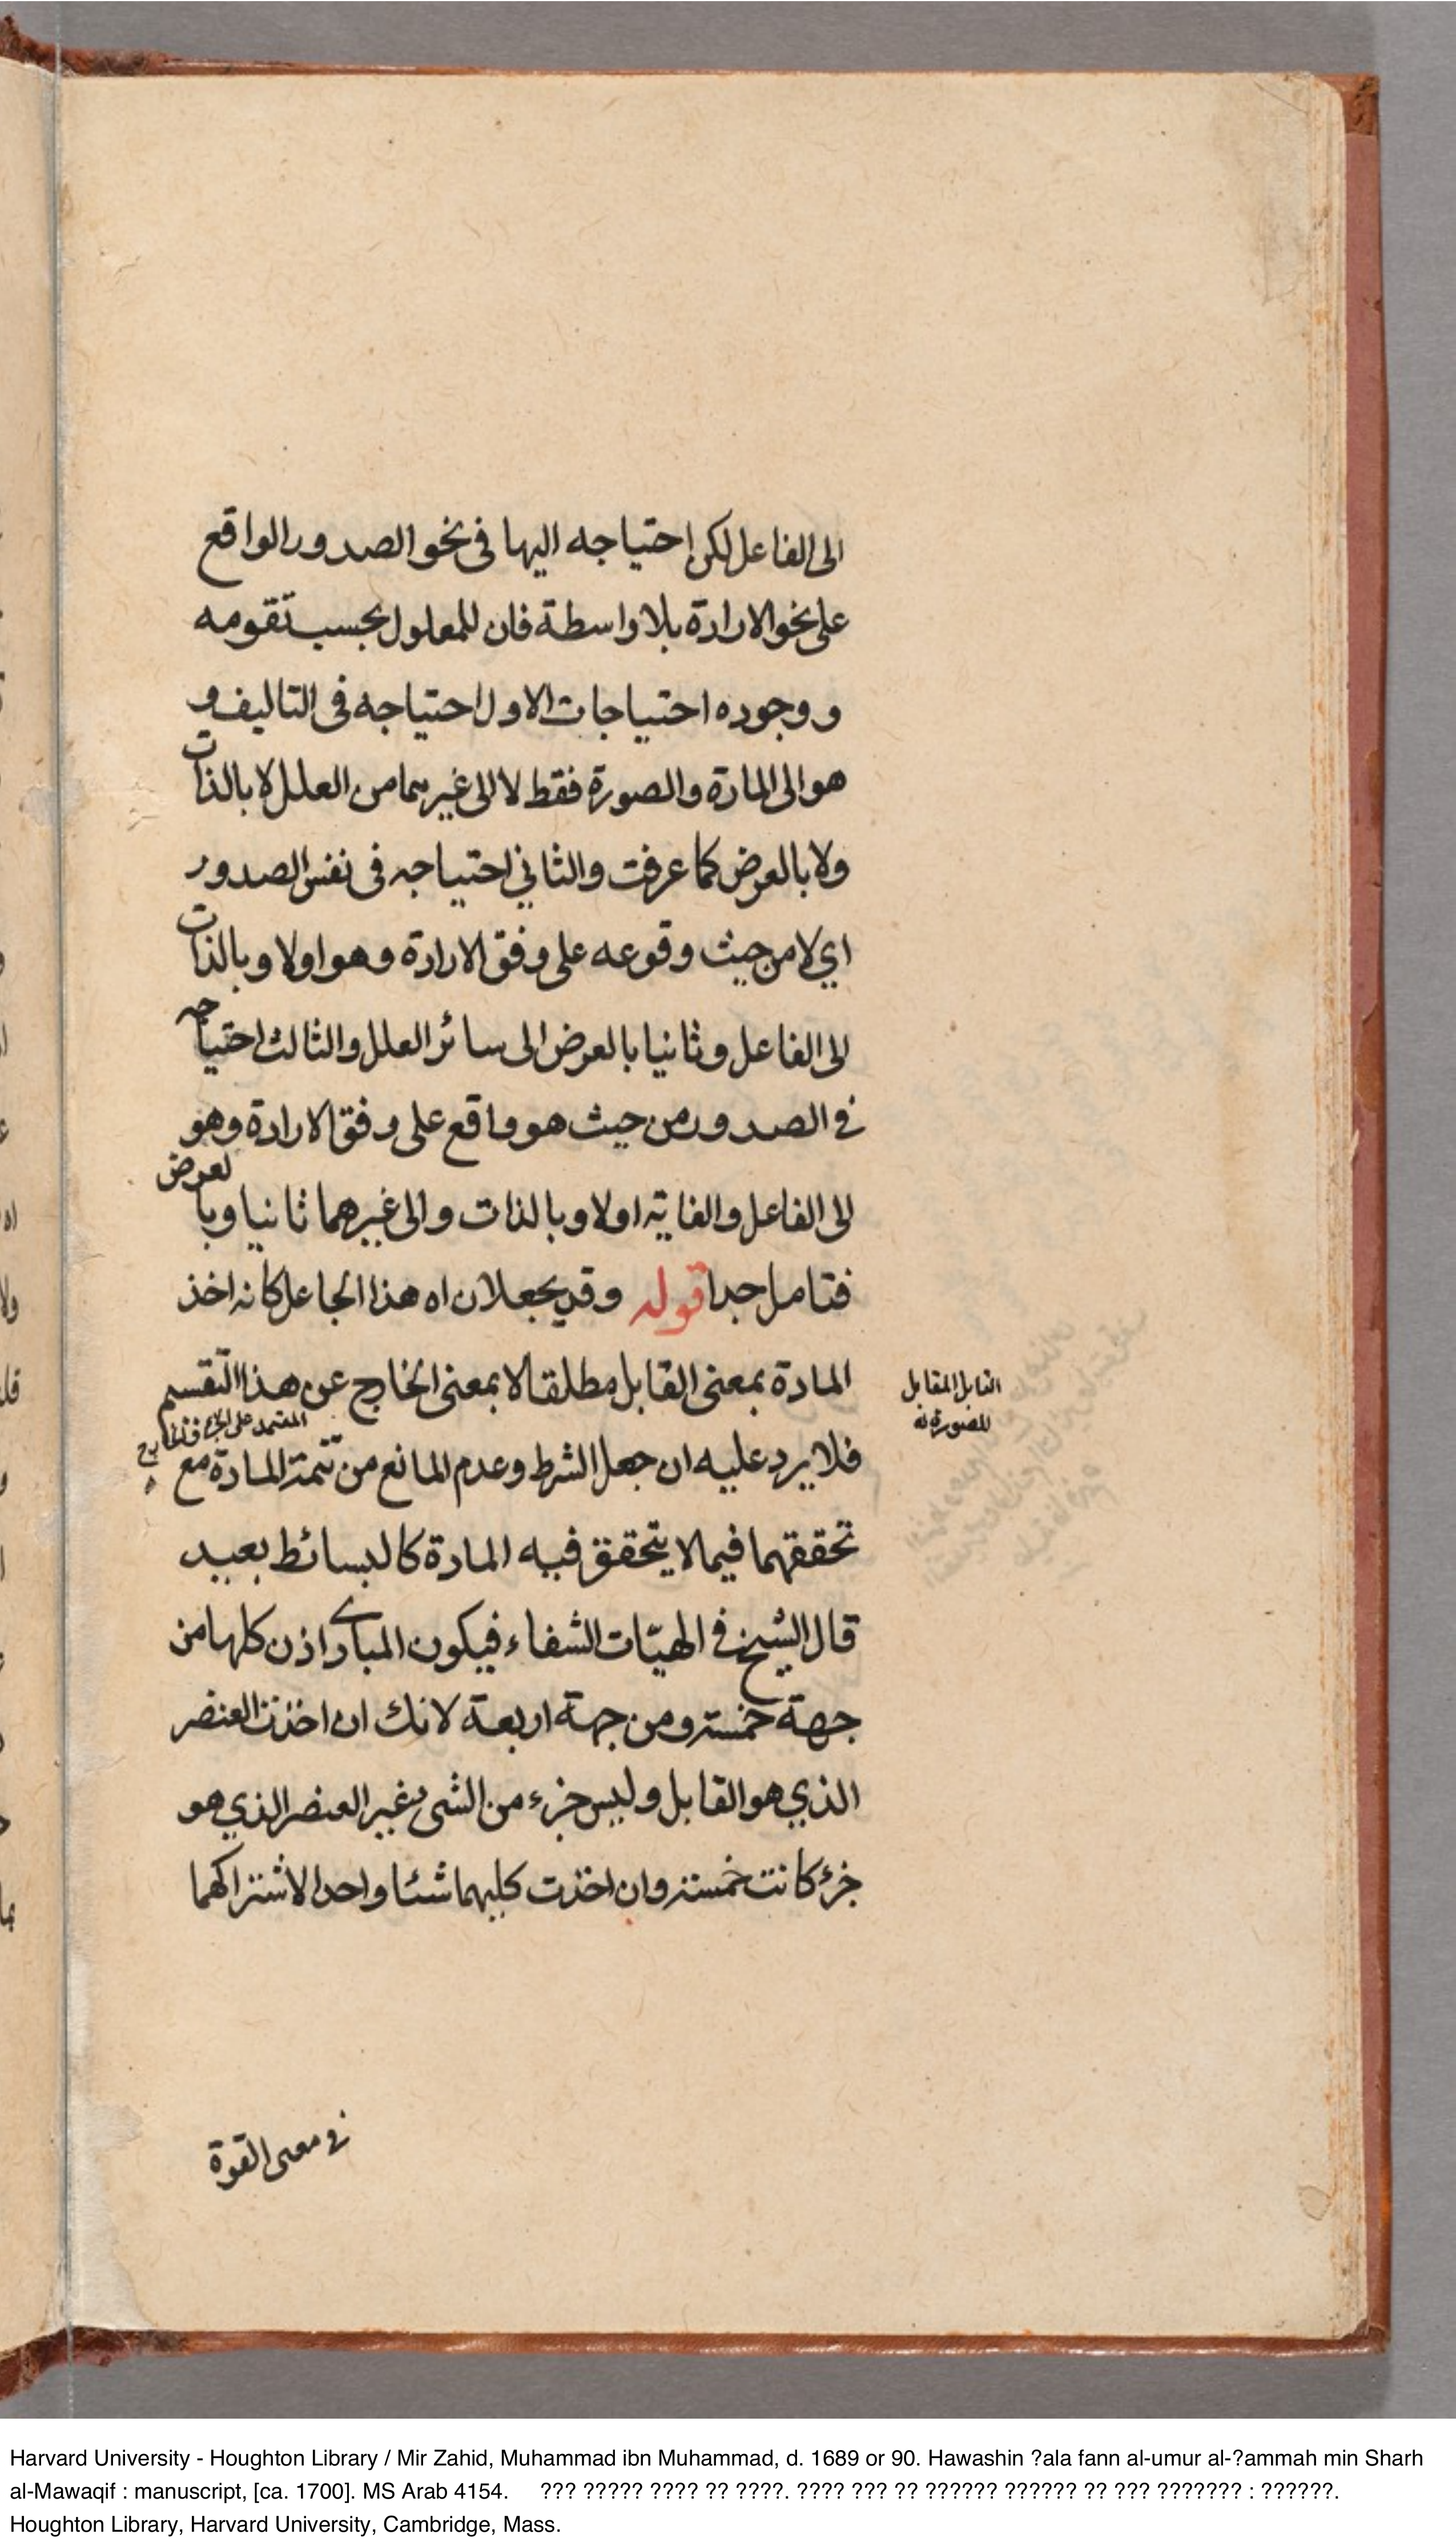 الى الفاعل لكن احتياجه اليها في نحو الصدور الواقع
على نحو الارادة بلا واسطة فان للمعلول بحسب تقومه
و وجوده احتياجات الاول احتياجه في التاليف و
هو الى المادة والصورة فقط لا الى غيرهما من العلل لا بالذات
ولا بالعرض كما عرفت والثاني احتياجه في نفس الصدور
اي لا من حيث وقوعه على وفق الارادة وهو اولا وبالذات
الى الفاعل وثانيا بالعرض الى سائر العلل والثالث احتياجه
في الصدور من حيث هو واقع على وفق الارادة وهو
الى الفاعل والغاية اولا وبالذات والى غيرهما ثانيا وبالعرض
فتامل جدا قوله وقد يجعلان اه هذا الجاعل كانه اخذ
المادة بمعنى القابل مطلقا لا بمعنى الخارج عن هذا التقسيم
القابل المقابل
للصورة منه
المعتمد على الجزء والخارج
فلا يرد عليه ان جعل الشرط وعدم المانع من تتمة المادة مع
تحققهما فيما لا يتحقق فيه المادة كالبسائط بعيد
قال الشيخ في الهيّات الشفاء فيكون المبادى اذن كلها من
جهة خمسة ومن جهة اربعة لانك ان اخذت العنصر
الذي هو القابل وليس جزء من الشى غير العنصر الذي هو
جزء كانت خمسة وان اخذت كليهما شئا واحدا لاشتراكهما
في معنى القوة
Harvard University - Houghton Library / Mir Zahid, Muhammad ibn Muhammad, d. 1689 or 90. Hawashin ?ala fann al-umur al-?ammah min Sharh
al-Mawaqif : manuscript, [ca. 1700]. MS Arab 4154. ??? ????? ???? ?? ????. ???? ??? ?? ?????? ?????? ?? ??? ??????? : ??????.
Houghton Library, Harvard University, Cambridge, Mass.